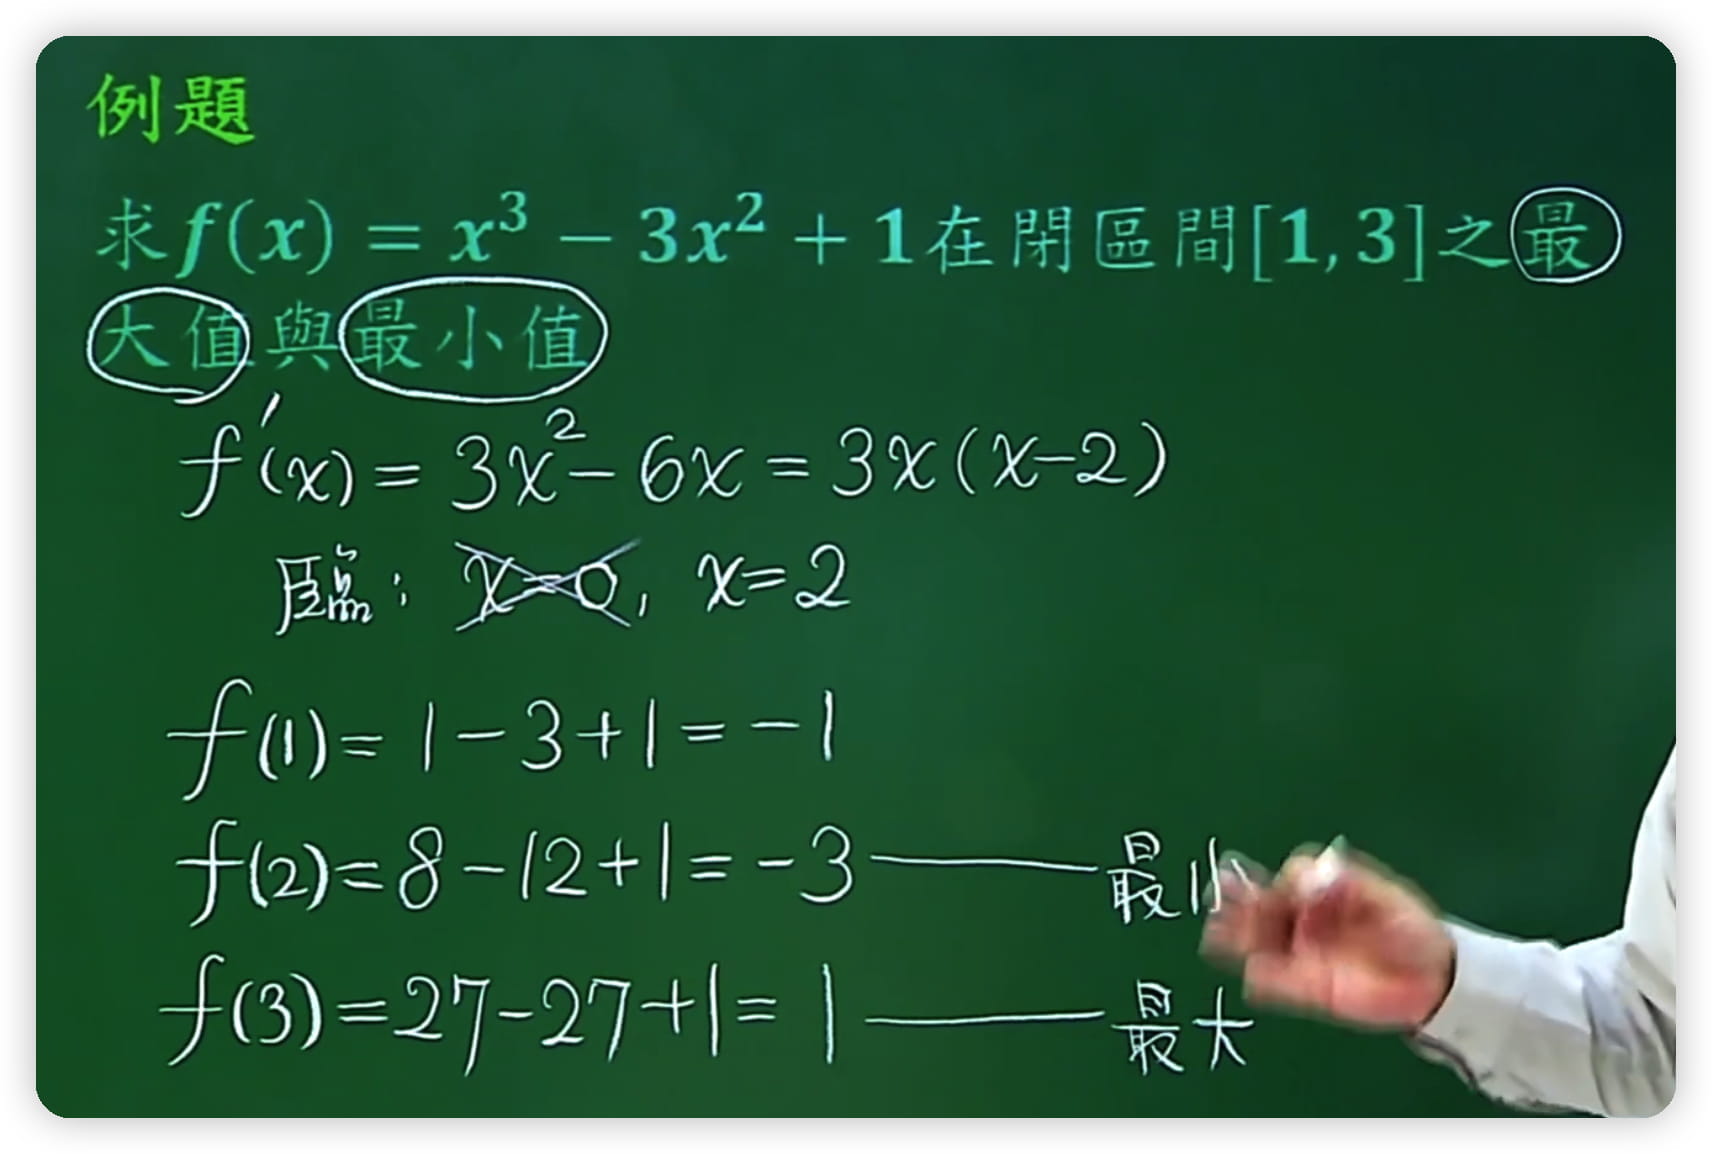 例題
求f(x) = x³ − 3x² + 1在閉區間[1,3]之最
大值與最小值
f'(x) = 3x² − 6x = 3x(x−2)
臨: x=0, x=2
f(1) = 1 − 3 + 1 = −1
f(2) = 8 − 12 + 1 = −3 —— 最小
f(3) = 27 − 27 + 1 = 1 —— 最大